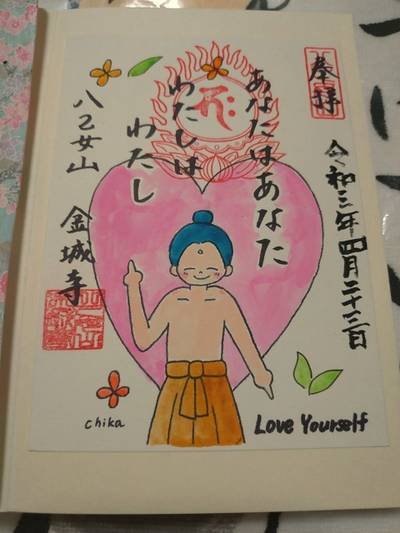 奉拝
令和三年四月二十三日
あなたはあなた
わたしは
わたし
八乙女山 金城寺
chika
Love Yourself